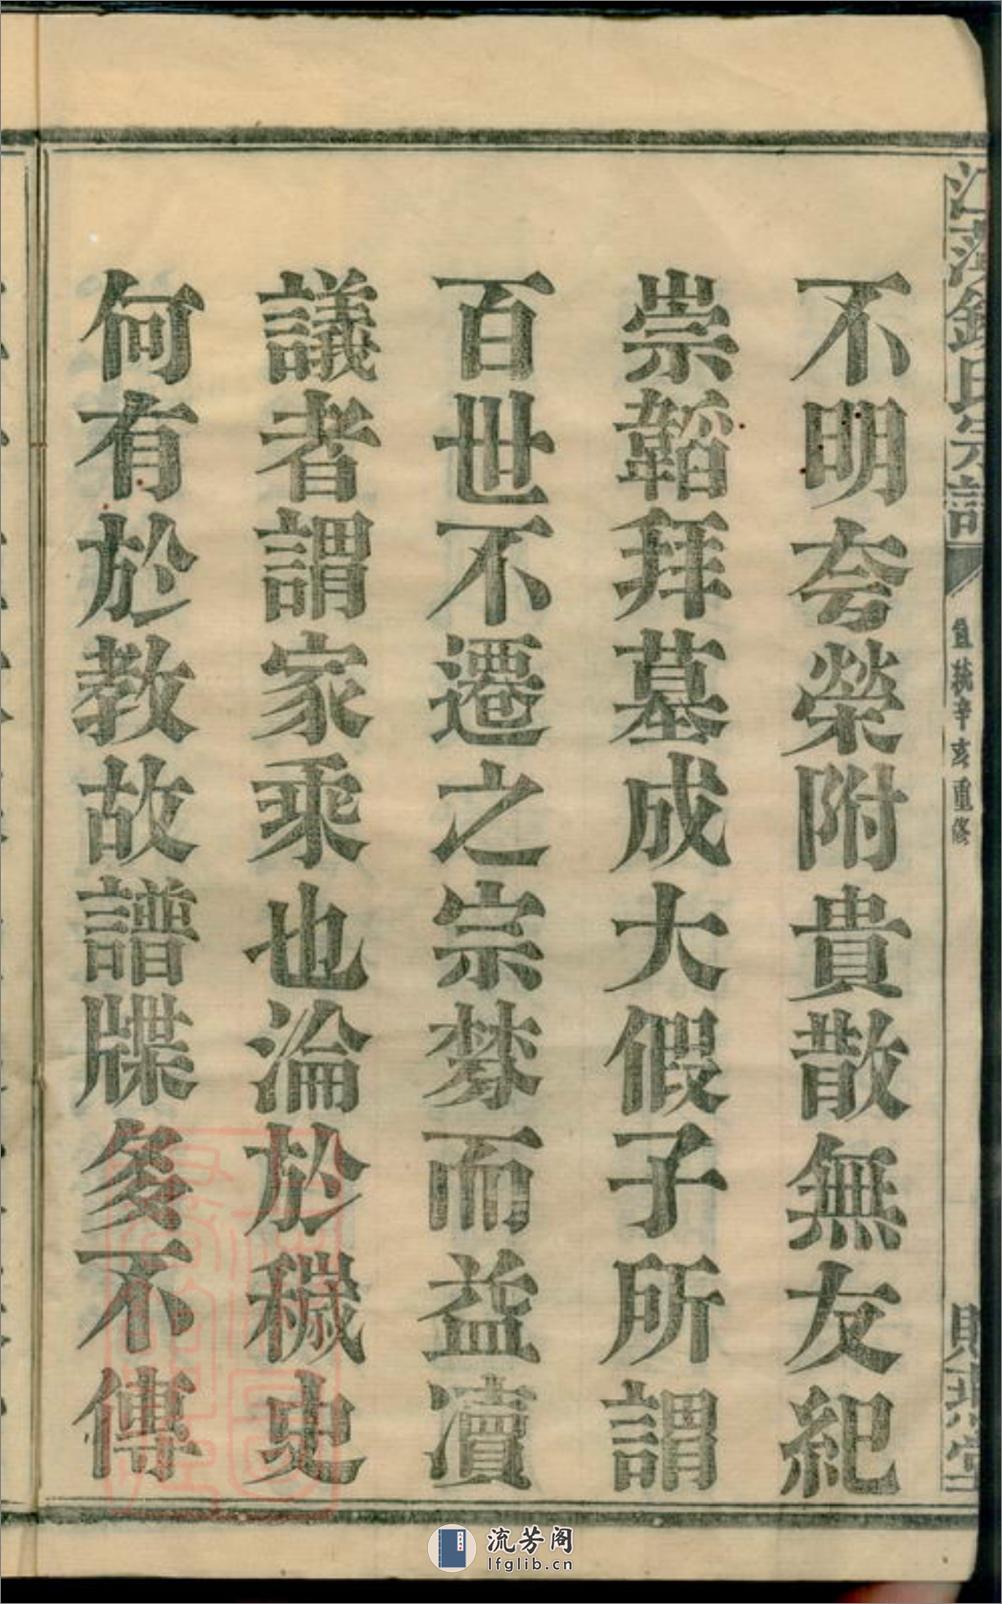 氏宗譜
宣統辛亥重修
堂
不明夸榮附貴散無友紀
崇韜拜墓成大假子所謂
百世不遷之宗棼而益瀆
議者謂家乘也淪於穢史
何有於教故譜牒多不傳
流芳阁
lfglib.cn